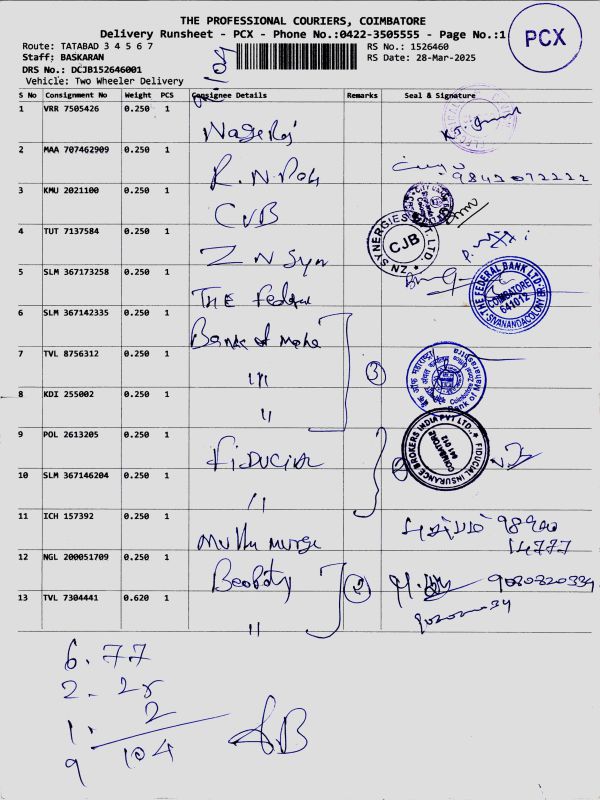 THE PROFESSIONAL COURIERS, COIMBATORE
Delivery Runsheet - PCX - Phone No.:0422-3505555 - Page No.:1
PCX
Route: TATABAD 3 4 5 6 7
RS No.: 1526460
Staff: BASKARAN
RS Date: 28-Mar-2025
DRS No.: DCJB152646001
Vehicle: Two Wheeler Delivery
S No Consignment No Weight PCS Consignee Details Remarks Seal & Signature
1 VRR 7505426 0.250 1 Nageraj
2 MAA 707462909 0.250 1 R.N. 9842072222
3 KMU 2021100 0.250 1 CVB
4 TUT 7137584 0.250 1 Z N Syn
ZN SYNERGIES PVT. LTD. CJB
5 SLM 367173258 0.250 1 THE Federal
THE FEDERAL BANK LTD. COIMBATORE 641012 SIVANANDACOLONY BR
6 SLM 367142335 0.250 1 Bank of Maha
7 TVL 8756312 0.250 1 "
3
Bank of Maharashtra
8 KDI 255002 0.250 1 "
9 POL 2613205 0.250 1 FiDUCIAL
FIDUCIAL INSURANCE BROKERS INDIA PVT LTD., COIMBATORE 641 012
10 SLM 367146204 0.250 1 "
11 ICH 157392 0.250 1 Muthu
14777
12 NGL 200051709 0.250 1 2 9080820334
13 TVL 7304441 0.620 1 "
6. 77
2. 25
1. 2
9 104